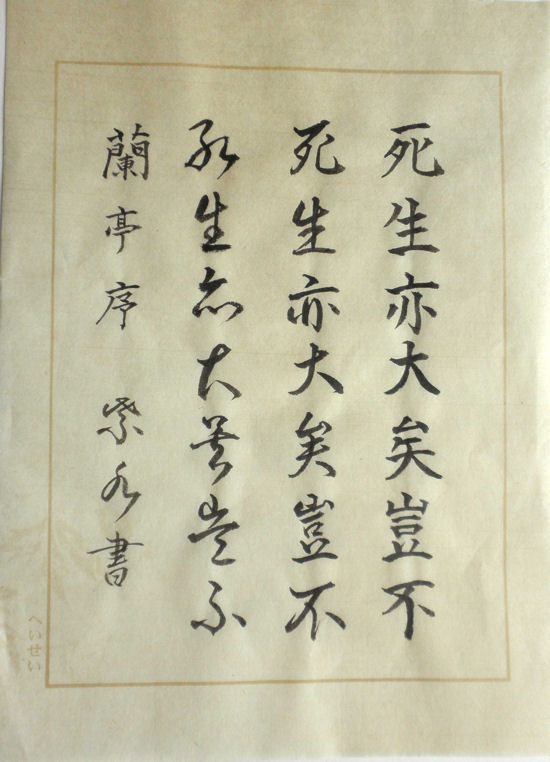 死生亦大矣豈不
死生亦大矣豈不
死生亦大矣豈不
蘭亭序 紫水書
へいせい